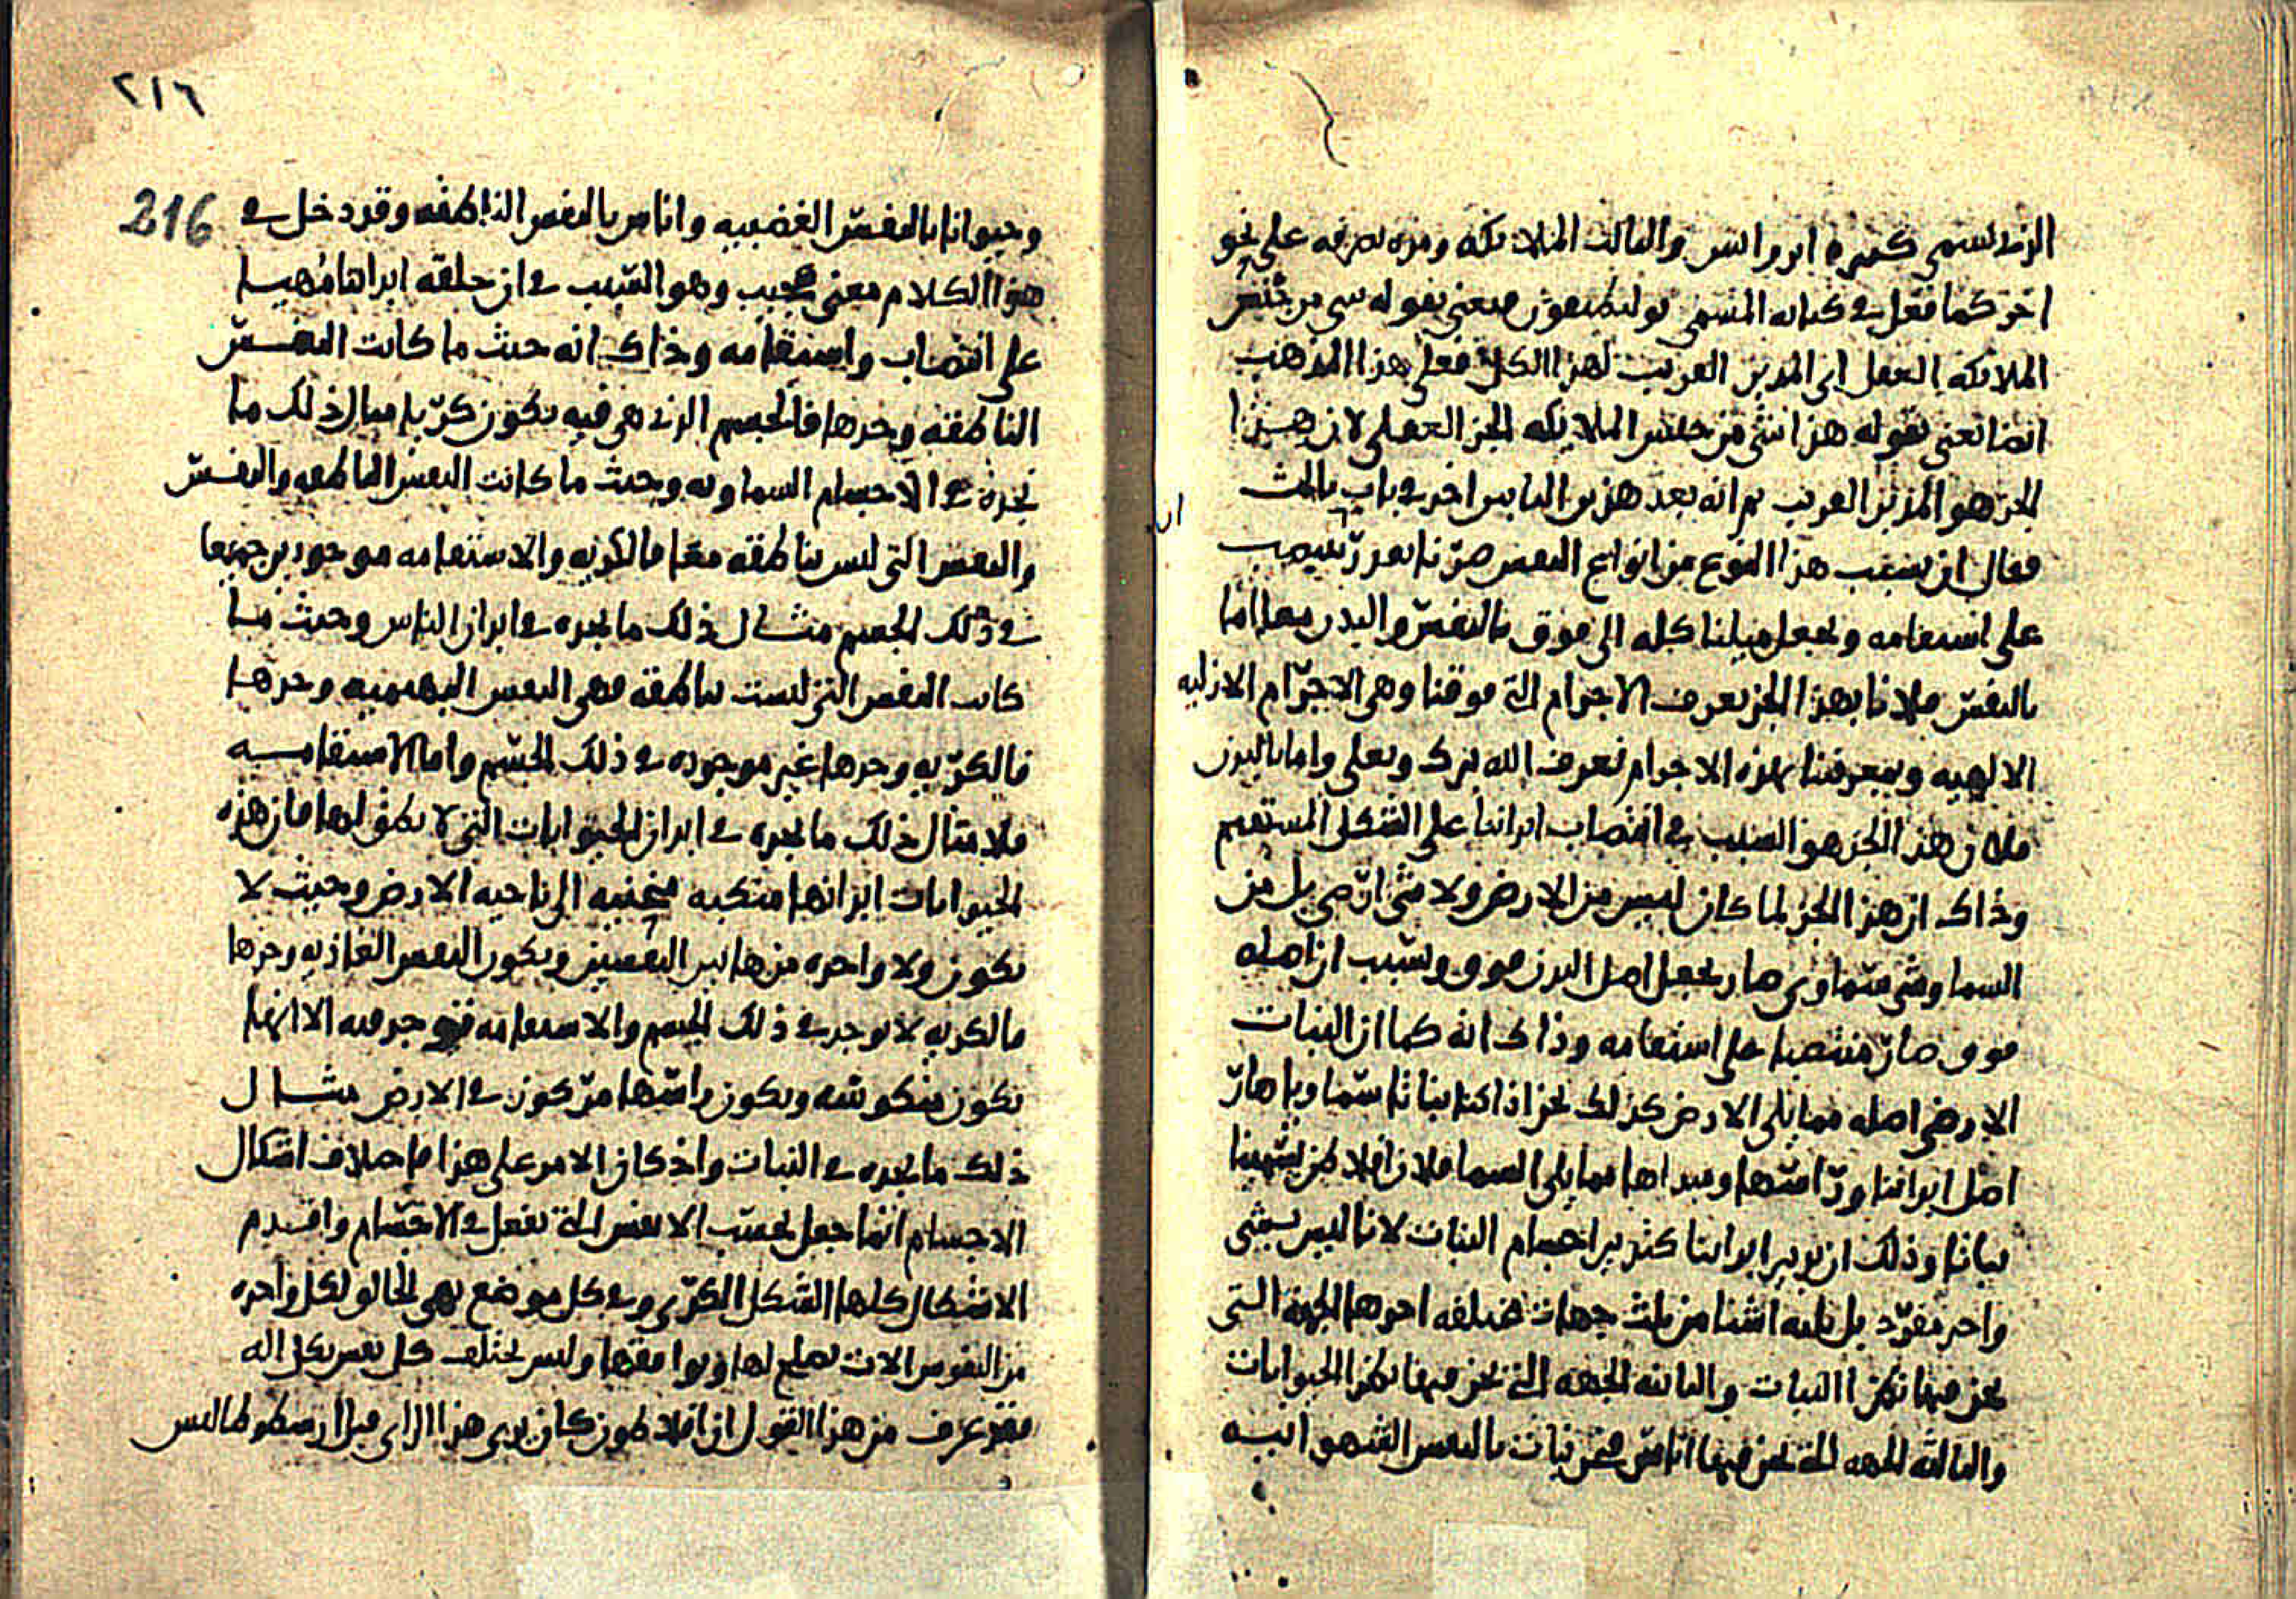 الذي نسمى كثيره ابرواس والثالث الملائكه ومره نصرفه على نحو
اخر كما فعل في كتابه المسمى بوليطيقون ويعني بقوله شي من جنس
الملائكه العقل اي المدبر القريب لهذا الكل فعلى هذا المذهب
ايضا نعني بقوله هذا شي من جنس الملايكه الجز العقلي لان هذا
الجز هو المدبر القريب ثم انه بعد هذين البابين اخذ في باب ثالث
فقال ان بسبب هذا النوع من انواع النفس صرنا نعد ونسب
على استقامه ونجعل ميلنا كله الى فوق بالنفس والبدن معا اما
بالنفس فلانا بهذا الجز نعرف الاجرام التي فوقنا وهي الاجرام الازليه
الالهيه وبمعرفتنا بهذه الاجرام نعرف الله تبرك وتعلى واما بالبدن
فلان هذا الجز هو السبب في انتصاب ابداننا على الشكل المستقيم
وذاك ان هذا الجز لما كان ليس من الارض ولا شي ارضي بل من
السما وشي سماوي صار يجعل اصل البدن فوق وبسبب ان اصله
فوق صار منتصبا على استقامه وذاك انه كما ان النبات
الارضي اصله مما يلي الارض كذلك نحن اذا كنا نباتا سماويا صار
اصل ابداننا وراسها ومبداها مما يلي السما فلان افلاطن يشبهنا
نباتا وذلك ان تدبير ابداننا كتدبير اجسام النبات لانا ليس بشي
واحد مفرد بل ثلثه اشيا من ثلث جهات مختلفه احدها الجهه التي
نحن فيها نظرا النبات والثانيه الجهه التي نحن فيها نظرا الحيوانات
والثالثه الجهه التي نحن فيها اناس فنحن نبات بالنفس الشهوانيه
ان
٢١٦
216
وحيوانا بالنفس الغضبيه واناس بالنفس الناطقه وقد دخل في
هذا الكلام معنى عجيب وهو السبب في ان خلقه ابداننا مهيا
على انتصاب واستقامه وذاك انه حيث ما كانت النفس
الناطقه وحدها فالجسم الذي هي فيه يكون كريا مثال ذلك ما
نجده في الاجسام السماويه وحيث ما كانت النفس الناطقه والنفس
والنفس التي ليس بناطقه معا فالكريه والاستقامه موجودين جميعا
في ذلك الجسم مثال ذلك ما نجده في ابدان الناس وحيث ما
كانت النفس التي ليست بناطقه وهي النفس البهيميه وحدها
فالكريه وحدها غير موجوده في ذلك الجسم واما الاستقامه
فلا مثال ذلك ما نجده في ابدان الحيوانات التي لا نطق لها فان هذه
الحيوانات ابدانها منكبه منحنيه الى ناحيه الارض وحيث لا
تكون ولا واحده من هاتين النفسين وتكون النفس الغاذيه وحدها
فالكريه لا توجد في ذلك الجسم والاستقامه توجد فيه الا انها
تكون منكوسه ويكون راسها مركون في الارض مثال
ذلك ما نجده في النبات واذ كان الامر على هذا فاختلاف اشكال
الاجسام انما جعل بحسب الانفس التي تفعل في الاجسام واقدم
الاشكال كلها الشكل الكري وفي كل موضع يهي الخالق لكل واحده
من النفوس الات تصلح لها وتوافقها وليس تختلف كل نفس بكل اله
فقد عرف من هذا القول ان افلاطون كان يرى هذا الراي قبل ارسطوطاليس